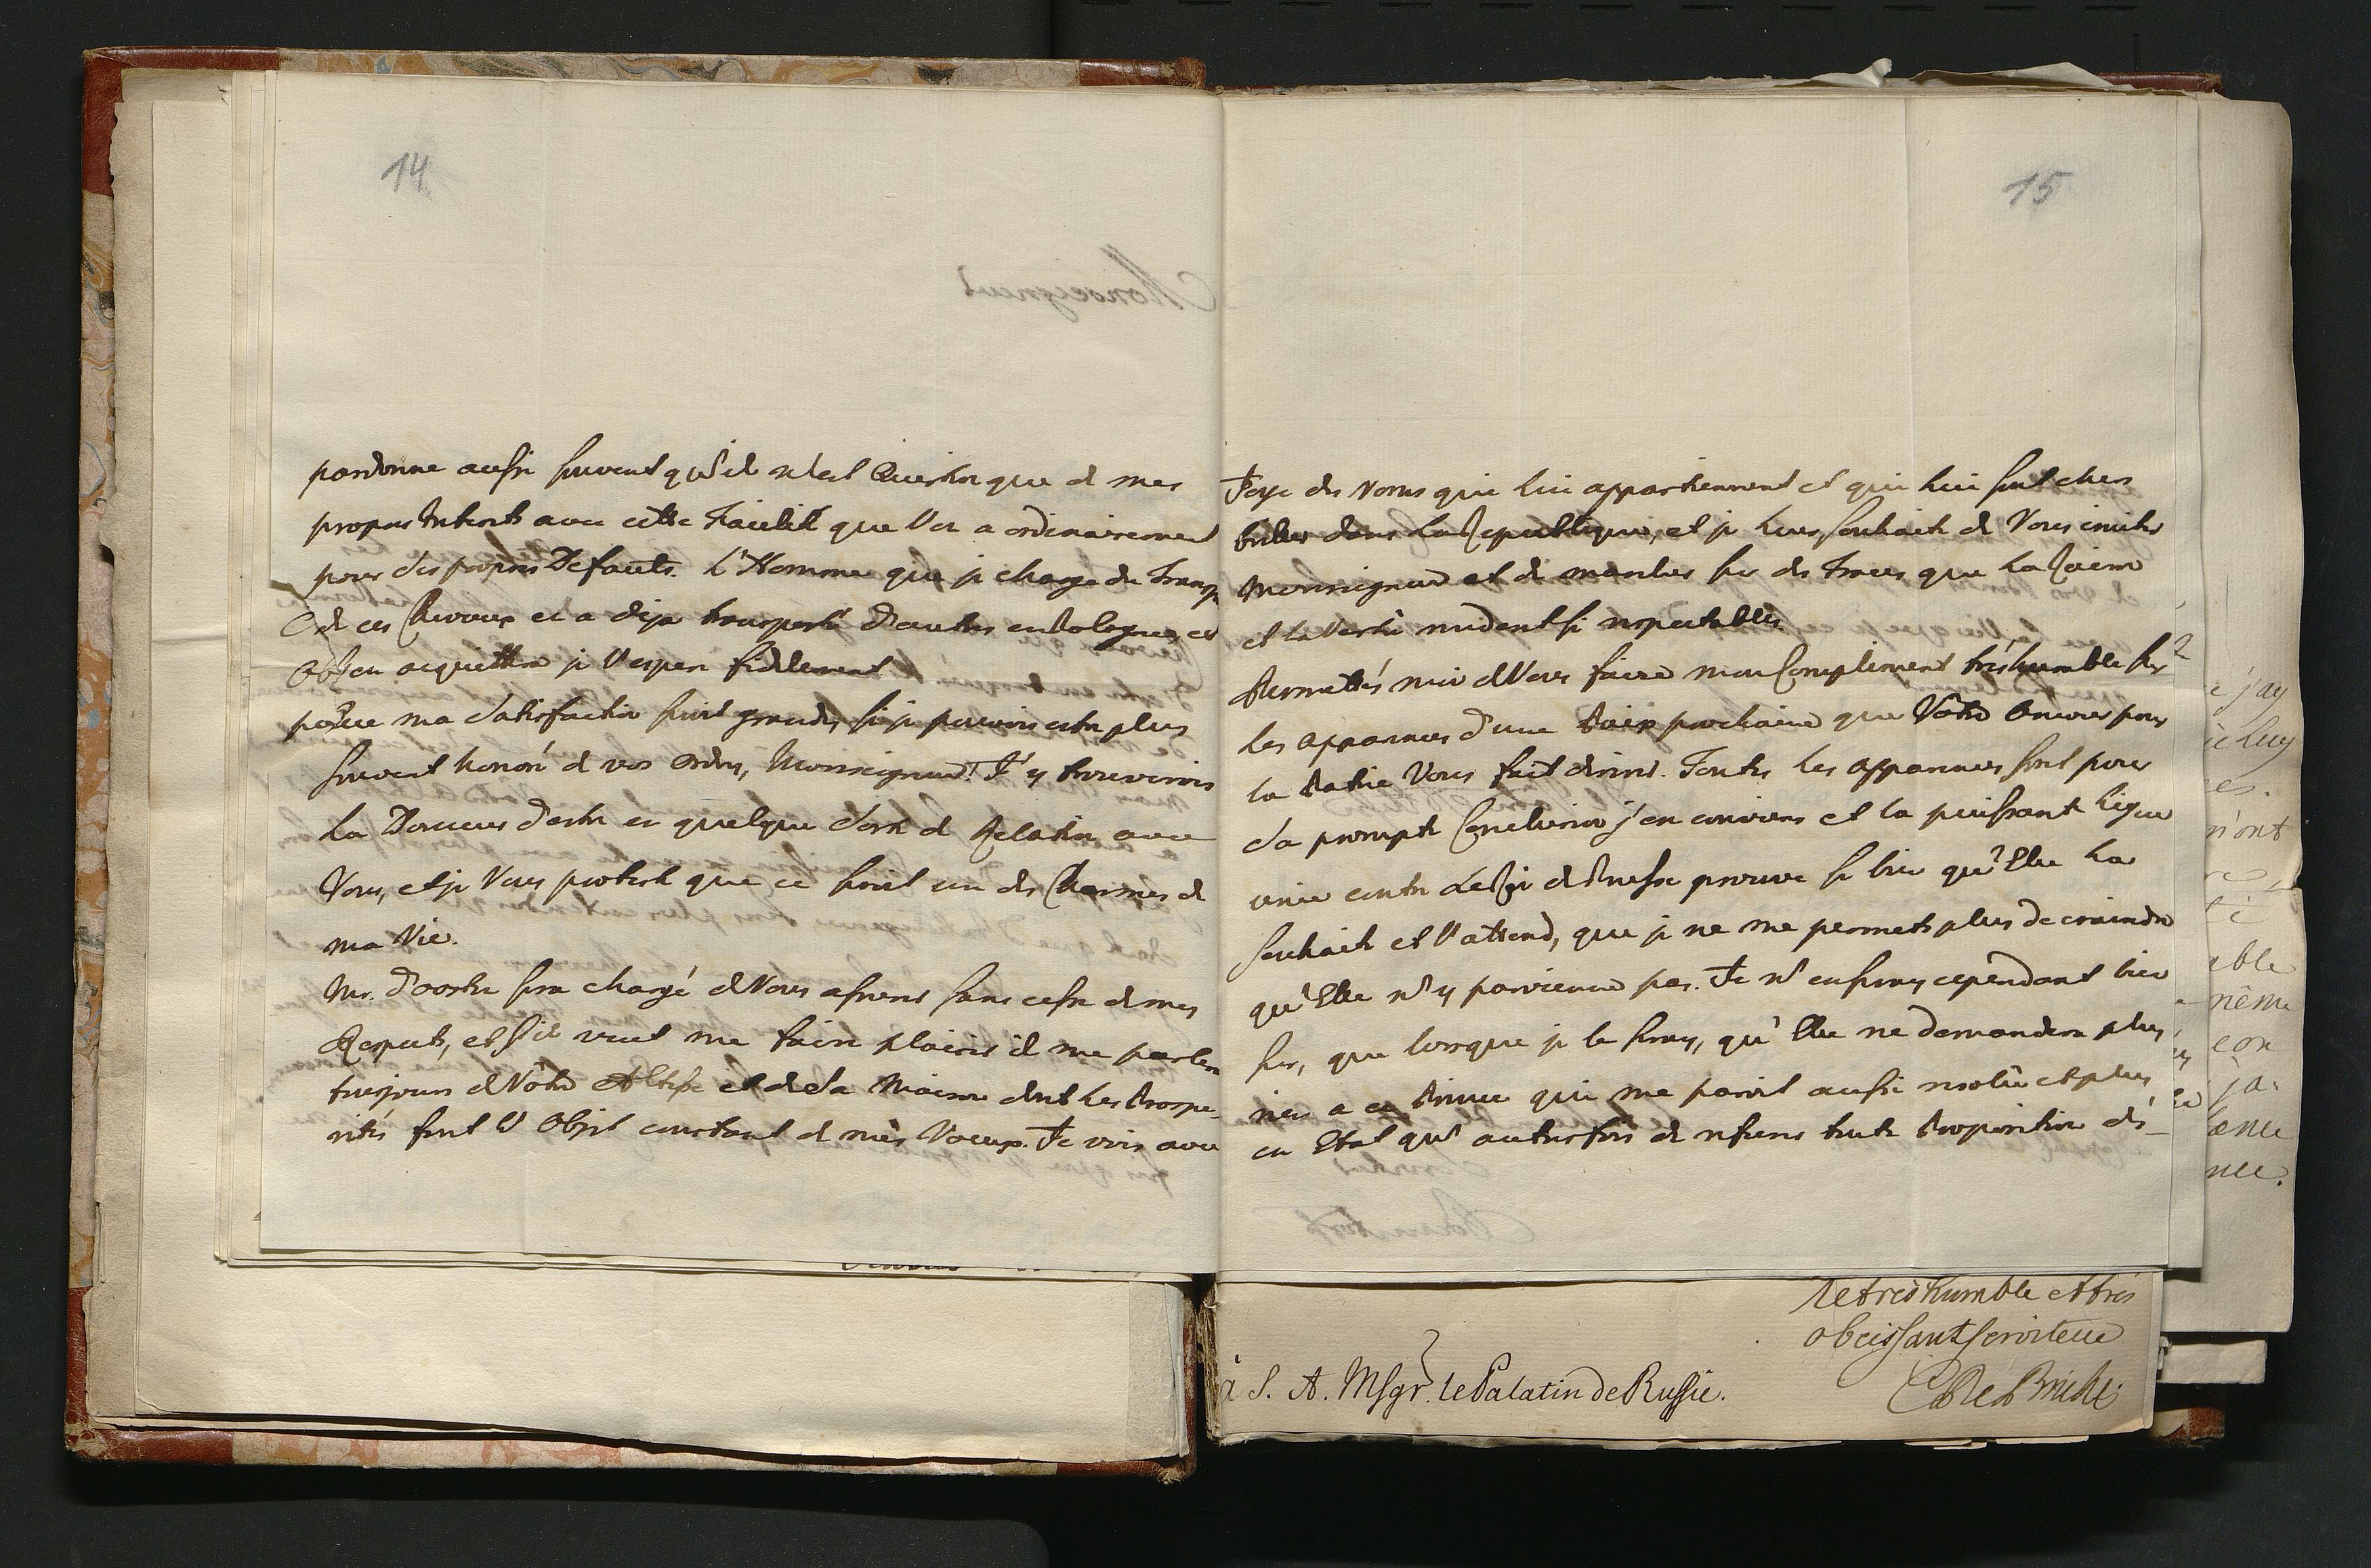 14
pardonne aussi souvent qu'il n'est Question que de mes
propres Interets avec cette Facilité que l'on a ordinairement
pour ses propres Defauts. L'Homme que je charge du Transp
de ces Chevaux en a deja transporté d'autres en Pologne, et
s'en acquittera je l'espere fidelement
que ma Satisfaction seroit grande, si je pouvois estre plus
souvent honoré de vos Ordres, Monseigneur! J'y trouverois
la Douceur d'estre en quelque Sorte de Relation avec
Vous, et je Vous proteste que ce seroit un des Charmes de
ma Vie.
Mr. d'Oostre sera chargé de Vous assurer sans cesse de mes
Respects, et s'il veut me faire plaisir il me parlera
toujours de Vôtre Altesse et de Sa Maison dont les Prospe-
rités sont l'Objet constant de mes Voeux. Je vois avec
15
Joye des Noms qui lui appartiennent et qui lui sont chers
briller dans la Republique, et je leur souhaite de Vous imiter
Monseigneur et de marcher sur des Traces que la
et la Vertu rendent si respectables.
Permettés moi de Vous faire mon Compliment trés humble sur
les apparences d'une Paix prochaine que Vôtre Amour pour
la Patrie Vous fait desirer. Toutes les apparences sont pour
Sa prompte Conclusion j'en conviens et la puissante Ligue
unie contre le Roi de Prusse prouve si bien qu'Elle la
souhaite et l'attend, que je ne me permets plus de craindre
qu'Elle n'y parvienne pas. Je n'en seray cependant bien
sur, que lorsque je le seray, qu'Elle ne demandera plus
rien a ce Prince qui me paroit aussi resolu et plus
en Etat qu'autrefois de refuser toute Proposition dés-
le tres humble et trés
obeissant Serviteur
à S. A. Msgr. le Palatin de Russie.
j'ay
luy
es.
n'ont
ble
même
con
ja-
nce.